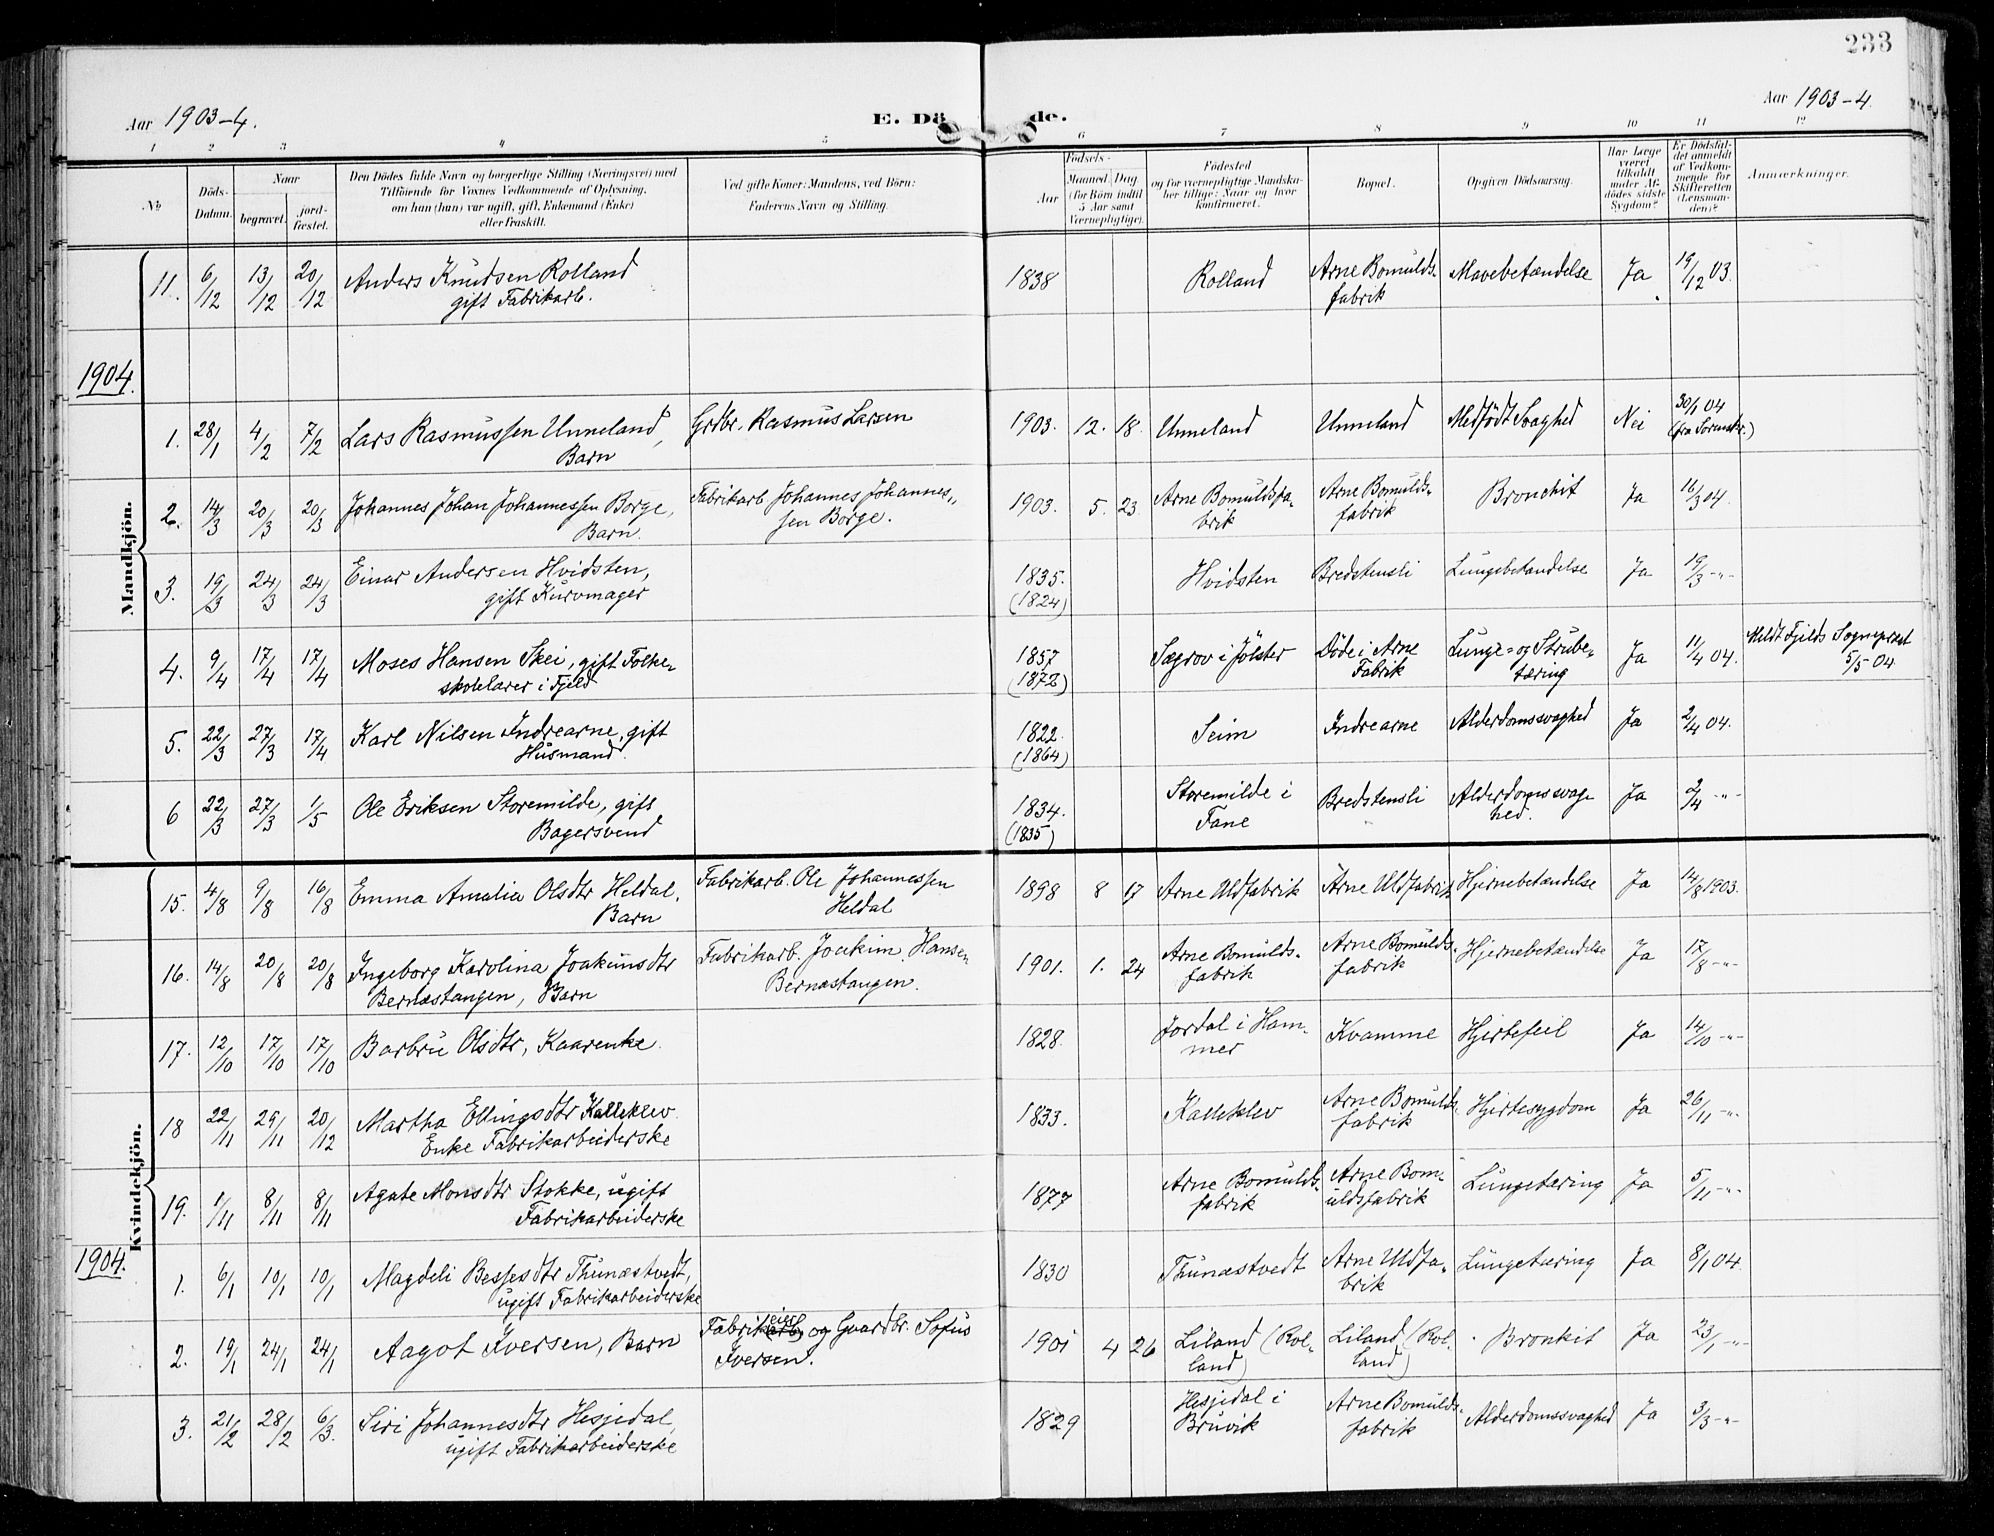 233
Aar 1903-4.
E. Dö
de.
Aar 1903-4.
1 2 3 4 5 6 7 8 9 10 11 12
No
Döds-
Datum.
Naar
begravet.
jord-
fæstet.
Den Dödes fulde Navn og borgerlige Stilling (Næringsvei) med
Tilföiende for Voxnes Vedkommende af Oplysning,
om han (hun) var ugift, gift, Enkemand (Enke)
eller fraskilt.
Ved gifte Koner: Mandens, ved Börn:
Faderens Navn og Stilling.
Födsels-
Aar
Maaned. Dag
(for Börn indtil
5 Aar samt
Værnepligtige).
Födested
og for værnepligtige Mandska-
ber tillige: Naar og hvor
konfirmeret.
Bopæl.
Opgiven Dödsaarsag.
Har Læge
været
tilkaldt
under Af-
dödes sidste
Sygdom?
Er Dödsfal-
det anmeldt
af Vedkom-
mende for
Skifteretten
(Lensman-
den)?
Anmærkninger.
Mandkjön.
11. 6/12 13/12 20/12 Anders Knudsen Rolland 1838 Rolland Arne Bomulds- Mavebetændelse Ja 19/12 03.
gift Fabrikarb. fabrik
1904.
1. 28/1 4/2 7/2 Lars Rasmussen Unneland, Grdbr. Rasmus Larsen 1903. 12. 18. Unneland Unneland Medfödt Svaghed Nei 30/1 04
Barn (fra Sorenskr.)
2. 14/3 20/3 20/3 Johannes Johan Johannessen Borge, Fabrikarb Johannes Johannes- 1903. 5. 23. Arne Bomuldsfa- Arne Bomulds- Bronchit Ja 16/3 04.
Barn. sen Borge. brik fabrik
3. 19/3 24/3 24/3 Einar Andersen Hvidsten, 1835. Hvidsten Bredstensli Lungebetændelse Ja 19/3 -"-
gift Kurvmager (1824)
4. 9/4 17/4 17/4 Moses Hansen Skei, gift Folke- 1857 Sægrov i Jölster Döde i Arne Lunge- og Strube- Ja 11/4 04. Meldt Fjelds Sogneprest
skolelærer i Fjeld (1872) Fabrik tæring 5/5 04.
5. 22/3 27/3 17/4 Karl Nilsen Indrearne, gift 1822. Seim Indrearne Alderdomssvaghed Ja 2/4 04.
Husmand. (1864)
6 22/3 27/3 1/5 Ole Eriksen Storemilde, gift 1834. Storemilde i Bredstensli Alderdomssvag- Ja 2/4 -"-
Bagersvend (1835) Fane hed.
Kvindekjön.
15. 4/8 9/8 16/8 Emma Amalia Olsdtr Heldal, Fabrikarb. Ole Johannessen 1898 8 17 Arne Uldfabrik Arne Uldfabrik Hjernebetændelse Ja 14/8 1903.
Barn Heldal
16. 14/8 20/8 20/8 Ingeborg Karolina Joakimsdtr Fabrikarb. Joakim Hansen 1901. 1. 24 Arne Bomulds- Arne Bomulds- Hjernebetændelse Ja 17/8 -"-
Bernæstangen, Barn Bernæstangen. fabrik fabrik
17. 12/10 17/10 17/10 Barbru Olsdtr, Kaarenke. 1828. Jordal i Ham- Kvamme Hjertefeil Ja 14/10 -"-
mer
18 22/11 29/11 20/12 Martha Ellingsdtr Kalleklev. 1833. Kalleklev Arne Bomulds- Hjertesygdom Ja 26/11 -"-
Enke Fabrikarbeiderske fabrik
19. 1/11 8/11 8/11 Agate Monsdtr Stokke, ugift 1877 Arne Bomulds- Arne Bom- Lungetæring Ja 5/11 -"-
Fabrikarbeiderske fabrik uldsfabrik
1904.
1. 6/1 10/1 10/1 Magdeli Bessesdtr Thunæstvedt, 1830 Thunæstvedt Arne Uldfa- Lungetæring Ja 8/1 04.
ugift Fabrikarbeiderske brik
2. 19/1 24/1 24/1 Aagot Iversen, Barn Fabrikeier og Gaardbr. Sofus 1901 4 26 Liland (Rol- Liland (Rol- Bronkit Ja 23/1 -"-
Iversen. land) land)
3. 21/2 28/2 6/3. Siri Johannesdtr Hesjedal, 1829 Hesjedal i Arne Bomulds- Alderdomssvaghed Ja 3/3 -"-
ugift Fabrikarbeiderske Bruvik fabrik